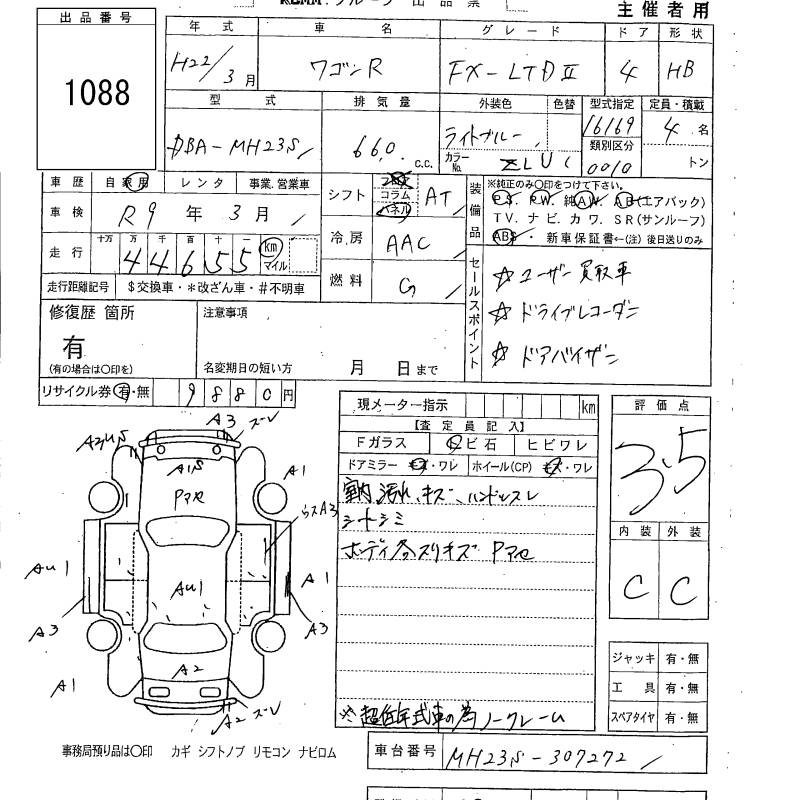 出品番号
1088
主催者用
年式 車名 グレード ドア 形状
H22/3月 ワゴンR FX-LTD II 4 HB
型式 排気量 外装色 色替 型式指定 定員・積載
DBA-MH23S 660 c.c. ライトブルー 16169 4名
カラーNo. ZLU 類別区分 0010 トン
車歴 自家用 レンタ 事業.営業車
車検 R9年3月
走行 十万 万 千 百 十 一 km マイル
44655
走行距離記号 $交換車・*改ざん車・#不明車
シフト コラム パネル AT
冷房 AAC
燃料 G
装備品 ※純正のみ〇印をつけて下さい。
P.S. P.W. 純A.W. A.B(エアバック)
T.V. ナビ. カワ. SR(サンルーフ)
ABS・新車保証書←(注)後日送りのみ
セールスポイント
☆ユーザー買取車
☆ドライブレコーダー
☆ドアバイザー
修復歴 箇所
有
(有の場合は〇印を)
注意事項
名変期日の短い方 月 日まで
リサイクル券 有・無 9880円
現メーター指示 km
【査定員記入】
Fガラス トビ石 ヒビワレ
ドアミラー キズ・ワレ ホイール(CP) キズ・ワレ
室内汚れ、キズ、ハンドルスレ
シートシミ
ボディ各スリキズ Pアセ
※超低年式車の為ノークレーム
評価点
3.5
内装 外装
C C
ジャッキ 有・無
工具 有・無
スペアタイヤ 有・無
A3 ズレ
A3US
A1S
A1
Pアセ
ウスA3
AU1
AU1
A1
A3
A3
A2
A1
A2 ズレ
事務局預り品は〇印 カギ シフトノブ リモコン ナビロム
車台番号 MH23S-307272